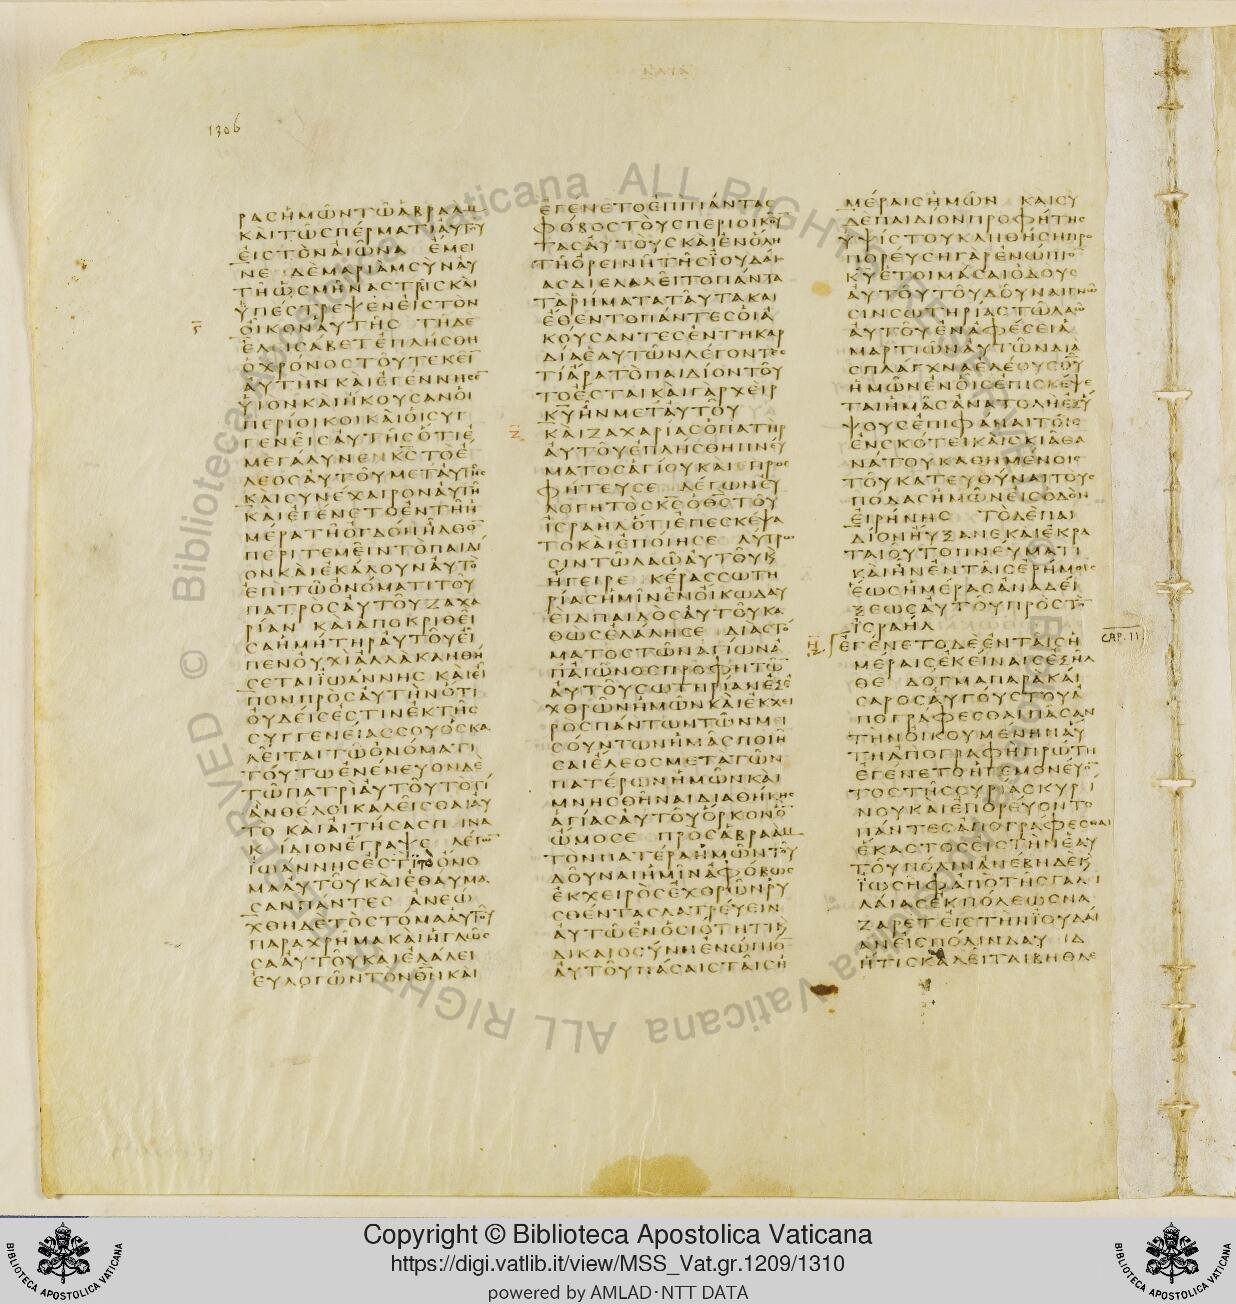 ΚΑΤΑ
1306
ΡΑΣΗΜΩΝΤΩΑΒΡΑΑΜ
ΚΑΙΤΩΣΠΕΡΜΑΤΙΑΥΤΟΥ
ΕΙΣΤΟΝΑΙΩΝΑ ΕΜΕΙ
ΝΕ ΔΕΜΑΡΙΑΜΣΥΝΑΥ
ΤΗΩΣΜΗΝΑΣΤΡΙΣΚΑΙ
ΥΠΕΣΤΡΕΨΕΝΕΙΣΤΟΝ
ΟΙΚΟΝΑΥΤΗΣ ΤΗΔΕ
ΕΛΕΙΣΑΒΕΤΕΠΛΗΣΘΗ
ΟΧΡΟΝΟΣΤΟΥΤΕΚΕΙ̅
ΑΥΤΗΝΚΑΙΕΓΕΝΝΗΣΕ̅
ΥΙΟΝΚΑΙΗΚΟΥΣΑΝΟΙ
ΠΕΡΙΟΙΚΟΙΚΑΙΟΙΣΥΓ
ΓΕΝΕΙΣΑΥΤΗΣΟΤΙΕ
ΜΕΓΑΛΥΝΕΝΚ̅Σ̅ΤΟΕ
ΛΕΟΣΑΥΤΟΥΜΕΤΑΥΤΗΣ
ΚΑΙΣΥΝΕΧΑΙΡΟΝΑΥΤΗ
ΚΑΙΕΓΕΝΕΤΟΕΝΤΗΗ
ΜΕΡΑΤΗΟΓΔΟΗΗΛΘΟ̅
ΠΕΡΙΤΕΜΕΙΝΤΟΠΑΙΔΙ
ΟΝΚΑΙΕΚΑΛΟΥΝΑΥΤΟ
ΕΠΙΤΩΟΝΟΜΑΤΙΤΟΥ
ΠΑΤΡΟΣΑΥΤΟΥΖΑΧΑ
ΡΙΑΝ ΚΑΙΑΠΟΚΡΙΘΕΙ
ΣΑΗΜΗΤΗΡΑΥΤΟΥΕΙ
ΠΕΝΟΥΧΙΑΛΛΑΚΛΗΘΗ
ΣΕΤΑΙΪΩΑΝΝΗΣ ΚΑΙΕΙ
ΠΟΝΠΡΟΣΑΥΤΗΝΟΤΙ
ΟΥΔΕΙΣΕΣΤΙΝΕΚΤΗΣ
ΣΥΓΓΕΝΕΙΑΣΣΟΥΟΣΚΑ
ΛΕΙΤΑΙΤΩΟΝΟΜΑΤΙ
ΤΟΥΤΩΕΝΕΝΕΥΟΝΔΕ
ΤΩΠΑΤΡΙΑΥΤΟΥΤΟΤΙ
ΑΝΘΕΛΟΙΚΑΛΕΙΣΘΑΙΑΥ
ΤΟ ΚΑΙΑΙΤΗΣΑΣΠΙΝΑ
ΚΙΔΙΟΝΕΓΡΑΨΕ ΛΕΓΩ̅
ΪΩΑΝΝΗΣΕΣΤΙ̅ΤΟΟΝΟ
ΜΑΑΥΤΟΥΚΑΙΕΘΑΥΜΑ
ΣΑΝΠΑΝΤΕΣ ΑΝΕΩ
ΧΘΗΔΕΤΟΣΤΟΜΑΑΥΤΟΥ
ΠΑΡΑΧΡΗΜΑΚΑΙΗΓΛΩΣ
ΣΑΑΥΤΟΥΚΑΙΕΛΑΛΕΙ
ΕΥΛΟΓΩΝΤΟΝΘ̅Ν̅ΚΑΙ
ΕΓΕΝΕΤΟΕΠΙΠΑΝΤΑΣ
ΦΟΒΟΣΤΟΥΣΠΕΡΙΟΙΚΟΥ
ΤΑΣΑΥΤΟΥΣΚΑΙΕΝΟΛΗ
ΤΗΟΡΕΙΝΗΤΗΣΪΟΥΔΑΙ
ΑΣΔΙΕΛΑΛΕΙΤΟΠΑΝΤΑ
ΤΑΡΗΜΑΤΑΤΑΥΤΑΚΑΙ
ΕΘΕΝΤΟΠΑΝΤΕΣΟΙΑ
ΚΟΥΣΑΝΤΕΣΕΝΤΗΚΑΡ
ΔΙΑΕΑΥΤΩΝΛΕΓΟΝΤΕΣ
ΤΙΑΡΑΤΟΠΑΙΔΙΟΝΤΟΥ
ΤΟΕΣΤΑΙΚΑΙΓΑΡΧΕΙΡ
Κ̅Υ̅ΗΝΜΕΤΑΥΤΟΥ
ΚΑΙΖΑΧΑΡΙΑΣΟΠΑΤΗΡ
ΑΥΤΟΥΕΠΛΗΣΘΗΠΝΕΥ
ΜΑΤΟΣΑΓΙΟΥΚΑΙΕΠΡΟ
ΦΗΤΕΥΣΕ ΛΕΓΩΝΕΥ
ΛΟΓΗΤΟΣΚ̅Σ̅ΟΘ̅Σ̅ΤΟΥ
ΙΣΡΑΗΛΟΤΙΕΠΕΣΚΕΨΑ
ΤΟΚΑΙΕΠΟΙΗΣΕ ΛΥΤΡΩ
ΣΙΝΤΩΛΑΩΑΥΤΟΥΚΑΙ
ΗΓΕΙΡΕ ΚΕΡΑΣΣΩΤΗ
ΡΙΑΣΗΜΙΝΕΝΟΙΚΩΔΑΥ
ΕΙΔΠΑΙΔΟΣΑΥΤΟΥΚΑ
ΘΩΣΕΛΑΛΗΣΕ ΔΙΑΣΤΟ
ΜΑΤΟΣΤΩΝΑΓΙΩΝΑ
ΠΑΙΩΝΟΣΠΡΟΦΗΤΩ̅
ΑΥΤΟΥΣΩΤΗΡΙΑΝΕΞΕ
ΧΘΡΩΝΗΜΩΝΚΑΙΕΚΧΕΙ
ΡΟΣΠΑΝΤΩΝΤΩΝΜΕΙ
ΣΟΥΝΤΩΝΗΜΑΣΠΟΙΗ
ΣΑΙΕΛΕΟΣΜΕΤΑΤΩΝ
ΠΑΤΕΡΩΝΗΜΩΝΚΑΙ
ΜΝΗΣΘΗΝΑΙΔΙΑΘΗΚΗΣ
ΑΓΙΑΣΑΥΤΟΥΟΡΚΟΝΟ̅
ΩΜΟΣΕ ΠΡΟΣΑΒΡΑΑΜ
ΤΟΝΠΑΤΕΡΑΗΜΩΝΤΟΥ
ΔΟΥΝΑΙΗΜΙΝΑΦΟΒΩΣ
ΕΚΧΕΙΡΟΣΕΧΘΡΩΝΡΥ
ΣΘΕΝΤΑΣΛΑΤΡΕΥΕΙΝ
ΑΥΤΩΕΝΟΣΙΟΤΗΤΙΚΑΙ
ΔΙΚΑΙΟΣΥΝΗΕΝΩΠΙΟ̅
ΑΥΤΟΥΠΑΣΑΙΣΤΑΙΣΗ
ΜΕΡΑΙΣΗΜΩΝ ΚΑΙΣΥ
ΔΕΠΑΙΔΙΟΝΠΡΟΦΗΤΗΣ
ΥΨΙΣΤΟΥΚΛΗΘΗΣΗΠΡΟ
ΠΟΡΕΥΣΗΓΑΡΕΝΩΠΙΟ̅
Κ̅Υ̅ΕΤΟΙΜΑΣΑΙΟΔΟΥΣ
ΑΥΤΟΥΤΟΥΔΟΥΝΑΙΓΝΩ
ΣΙΝΣΩΤΗΡΙΑΣΤΩΛΑΩ
ΑΥΤΟΥΕΝΑΦΕΣΕΙΑ
ΜΑΡΤΙΩΝΑΥΤΩΝΔΙΑ
ΣΠΛΑΓΧΝΑΕΛΕΟΥΣΘ̅Υ̅
ΗΜΩΝΕΝΟΙΣΕΠΙΣΚΕΨΕ
ΤΑΙΗΜΑΣΑΝΑΤΟΛΗΕΞΥ
ΨΟΥΣΕΠΙΦΑΝΑΙΤΟΙΣ
ΕΝΣΚΟΤΕΙΚΑΙΣΚΙΑΘΑ
ΝΑΤΟΥΚΑΘΗΜΕΝΟΙΣ
ΤΟΥΚΑΤΕΥΘΥΝΑΙΤΟΥΣ
ΠΟΔΑΣΗΜΩΝΕΙΣΟΔΟΝ
ΕΙΡΗΝΗΣ ΤΟΔΕΠΑΙ
ΔΙΟΝΗΥΞΑΝΕΚΑΙΕΚΡΑ
ΤΑΙΟΥΤΟΠΝΕΥΜΑΤΙ
ΚΑΙΗΝΕΝΤΑΙΣΕΡΗΜΟΙΣ
ΕΩΣΗΜΕΡΑΣΑΝΑΔΕΙ
ΞΕΩΣΑΥΤΟΥΠΡΟΣΤΟ̅
ΙΣΡΑΗΛ
ΕΓΕΝΕΤΟΔΕΕΝΤΑΙΣΗ
CAP. II
ΜΕΡΑΙΣΕΚΕΙΝΑΙΣΕΞΗΛ
ΘΕ ΔΟΓΜΑΠΑΡΑΚΑΙ
ΣΑΡΟΣΑΥΓΟΥΣΤΟΥΑ
ΠΟΓΡΑΦΕΣΘΑΙΠΑΣΑΝ
ΤΗΝΟΙΚΟΥΜΕΝΗΝΑΥ
ΤΗΑΠΟΓΡΑΦΗΠΡΩΤΗ
ΕΓΕΝΕΤΟΗΓΕΜΟΝΕΥΟ̅
ΤΟΣΤΗΣΣΥΡΙΑΣΚΥΡΙ
ΝΟΥΚΑΙΕΠΟΡΕΥΟΝΤΟ
ΠΑΝΤΕΣΑΠΟΓΡΑΦΕΣΘΑΙ
ΕΚΑΣΤΟΣΕΙΣΤΗΝΕΑΥ
ΤΟΥΠΟΛΙΝΑΝΕΒΗΔΕΚΑΙ
ΪΩΣΗΦΑΠΟΤΗΣΓΑΛΕΙ
ΛΑΙΑΣΕΚΠΟΛΕΩΣΝΑ
ΖΑΡΕΤΕΙΣΤΗΝΪΟΥΔΑΙ
ΑΝΕΙΣΠΟΛΙΝΔΑΥΕΙΔ
ΗΤΙΣΚΑΛΕΙΤΑΙΒΗΘΛΕ
© Biblioteca Apostolica Vaticana ALL RIGHTS RESERVED
Copyright © Biblioteca Apostolica Vaticana
https://digi.vatlib.it/view/MSS_Vat.gr.1209/1310
powered by AMLAD·NTT DATA
BIBLIOTECA APOSTOLICA VATICANA
BIBLIOTECA APOSTOLICA VATICANA